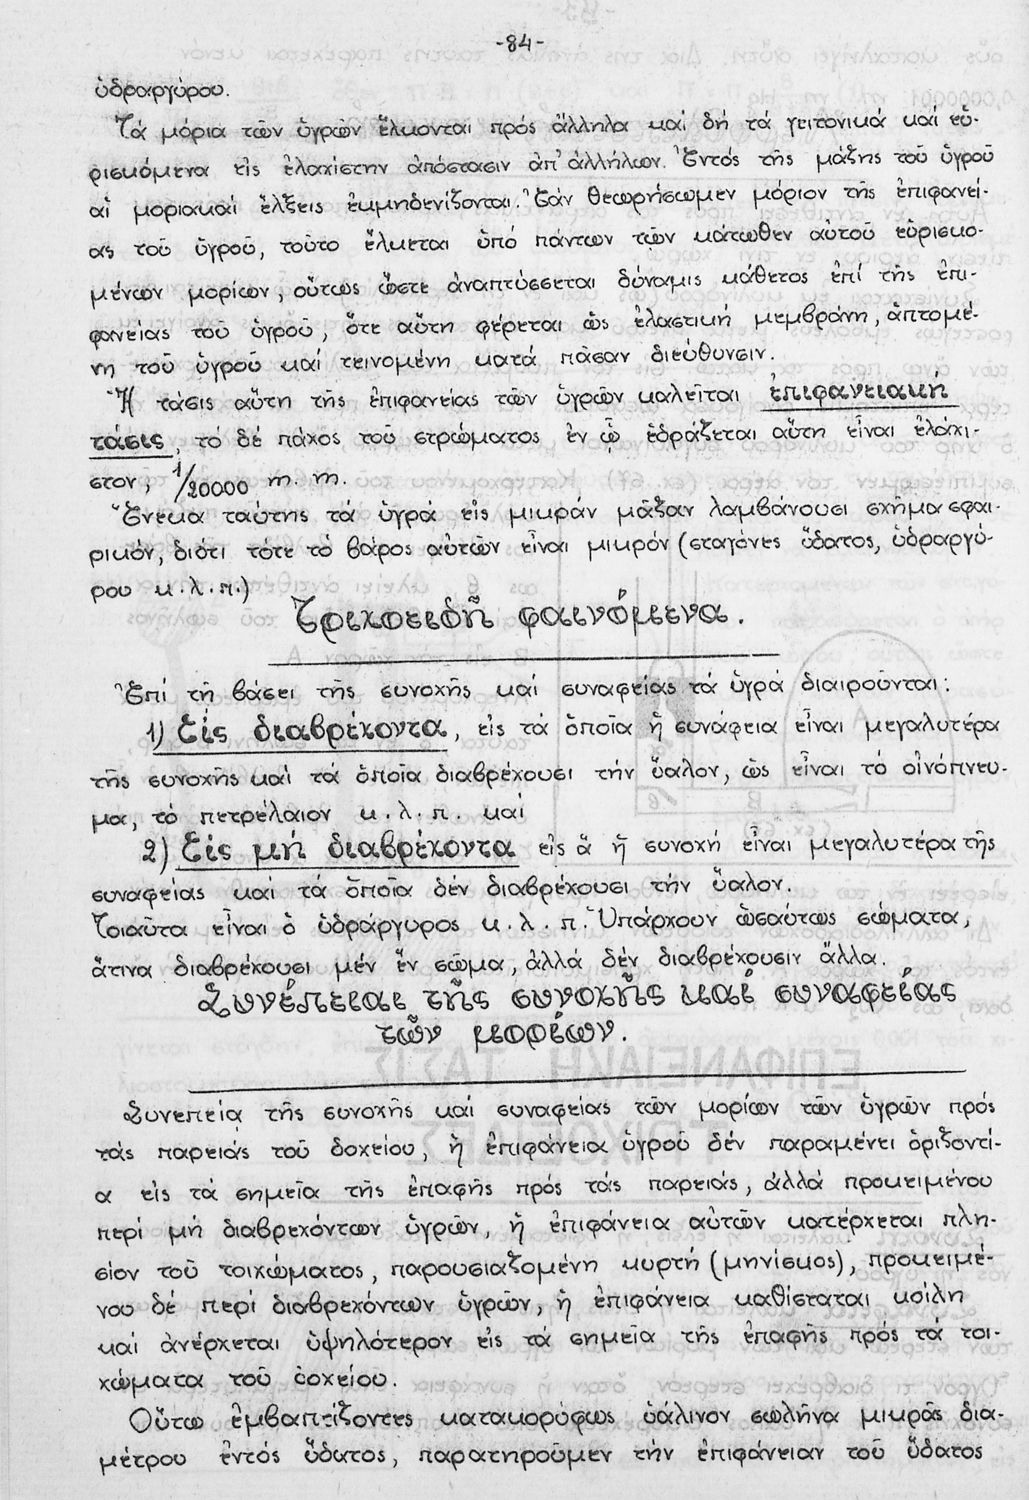 -84-
ὑδραργύρου.
Τά μόρια τῶν ὑγρῶν ἕλκονται πρός ἄλληλα καί δή τά γειτονικά καί εὑ-
ρισκόμενα εἰς ἐλαχίστην ἀπόστασιν ἀπ' ἀλλήλων. Ἐντός τῆς μάζης τοῦ ὑγροῦ
αἱ μοριακαί ἕλξεις ἐκμηδενίζονται. Ἐάν θεωρήσωμεν μόριον τῆς ἐπιφανεί-
ας τοῦ ὑγροῦ, τοῦτο ἕλκεται ὑπό πάντων τῶν κάτωθεν αὐτοῦ εὑρισκο-
μένων μορίων, οὕτως ὥστε ἀναπτύσσεται δύναμις κάθετος ἐπί τῆς ἐπι-
φανείας τοῦ ὑγροῦ, ὅτε αὕτη φέρεται ὡς ἐλαστική μεμβράνη, ἁπτομέ-
νη τοῦ ὑγροῦ καί τεινομένη κατά πᾶσαν διεύθυνσιν.
Ἡ τάσις αὕτη τῆς ἐπιφανείας τῶν ὑγρῶν καλεῖται ἐπιφανειακή
τάσις, τό δέ πάχος τοῦ στρώματος ἐν ᾧ ἑδράζεται αὕτη εἶναι ἐλάχι-
στον, 1/20000 m. m.
Ἕνεκα ταύτης τά ὑγρά εἰς μικράν μᾶζαν λαμβάνουσι σχῆμα σφαι-
ρικόν, διότι τότε τό βάρος αὐτῶν εἶναι μικρόν (σταγόνες ὕδατος, ὑδραργύ-
ρου κ.λ.π.)
Τριχοειδῆ φαινόμενα.
Ἐπί τῇ βάσει τῆς συνοχῆς καί συναφείας τά ὑγρά διαιροῦνται:
1) Εἰς διαβρέχοντα, εἰς τά ὁποῖα ἡ συνάφεια εἶναι μεγαλυτέρα
τῆς συνοχῆς καί τά ὁποῖα διαβρέχουσι τήν ὕαλον, ὡς εἶναι τό οἰνόπνευ-
μα, τό πετρέλαιον κ.λ.π. καί
2) Εἰς μή διαβρέχοντα εἰς ἅ ἡ συνοχή εἶναι μεγαλυτέρα τῆς
συναφείας καί τά ὁποῖα δέν διαβρέχουσι τήν ὕαλον.
Τοιαῦτα εἶναι ὁ ὑδράργυρος κ.λ.π. Ὑπάρχουν ὡσαύτως σώματα,
ἅτινα διαβρέχουσι μέν ἕν σῶμα, ἀλλά δέν διαβρέχουσιν ἄλλα.
Συνέπειαι τῆς συνοχῆς καί συναφείας
τῶν μορίων.
Συνεπείᾳ τῆς συνοχῆς καί συναφείας τῶν μορίων τῶν ὑγρῶν πρός
τάς παρειάς τοῦ δοχείου, ἡ ἐπιφάνεια ὑγροῦ δέν παραμένει ὁριζοντί-
α εἰς τά σημεῖα τῆς ἐπαφῆς πρός τάς παρειάς, ἀλλά προκειμένου
περί μή διαβρεχόντων ὑγρῶν, ἡ ἐπιφάνεια αὐτῶν κατέρχεται πλη-
σίον τοῦ τοιχώματος, παρουσιαζομένη κυρτή (μηνίσκος), προκειμέ-
νου δέ περί διαβρεχόντων ὑγρῶν, ἡ ἐπιφάνεια καθίσταται κοίλη
καί ἀνέρχεται ὑψηλότερον εἰς τά σημεῖα τῆς ἐπαφῆς πρός τά τοι-
χώματα τοῦ δοχείου.
Οὕτω ἐμβαπτίζοντες κατακορύφως ὑάλινον σωλῆνα μικρᾶς δια-
μέτρου ἐντός ὕδατος, παρατηροῦμεν τήν ἐπιφάνειαν τοῦ ὕδατος